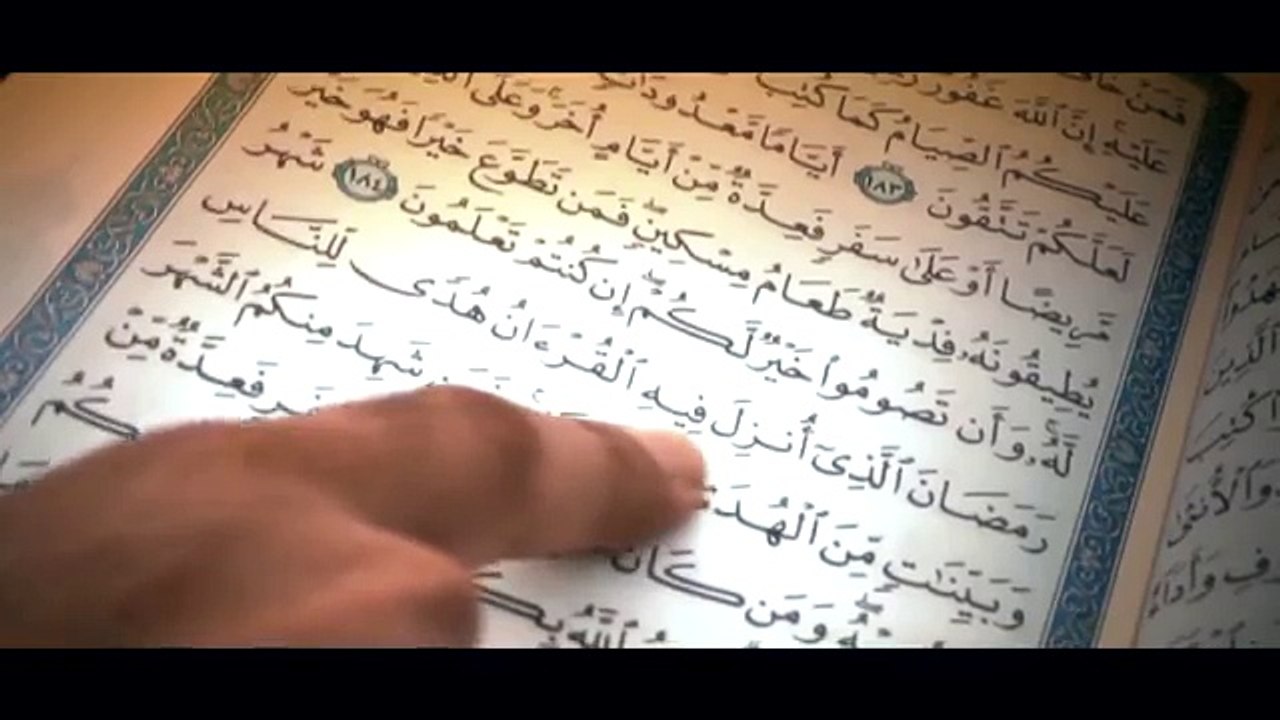 فَمَنْ خَافَ
عَلَيْهِ ۚ إِنَّ ٱللَّهَ غَفُورٌ
عَلَيْكُمُ ٱلصِّيَامُ كَمَا كُتِبَ
لَعَلَّكُمْ تَتَّقُونَ ١٨٣ أَيَّامًا مَّعْدُودَاتٍ
مَّرِيضًا أَوْ عَلَىٰ سَفَرٍ فَعِدَّةٌ مِّنْ أَيَّامٍ أُخَرَ ۚ وَعَلَى
يُطِيقُونَهُۥ فِدْيَةٌ طَعَامُ مِسْكِينٍ ۖ فَمَن تَطَوَّعَ خَيْرًا فَهُوَ خَيْرٌ
لَّهُۥ ۚ وَأَن تَصُومُوا۟ خَيْرٌ لَّكُمْ ۖ إِن كُنتُمْ تَعْلَمُونَ ١٨٤ شَهْرُ
رَمَضَانَ ٱلَّذِىٓ أُنزِلَ فِيهِ ٱلْقُرْءَانُ هُدًى لِّلنَّاسِ
وَبَيِّنَٰتٍ مِّنَ ٱلْهُدَىٰ شَهِدَ مِنكُمُ ٱلشَّهْرَ
وَمَن كَانَ فَعِدَّةٌ مِّنْ
ٱللَّهُ
ٱلَّذِينَ
كُتِبَ
وَٱلْأُنثَىٰ
وَأَدَآءٌ